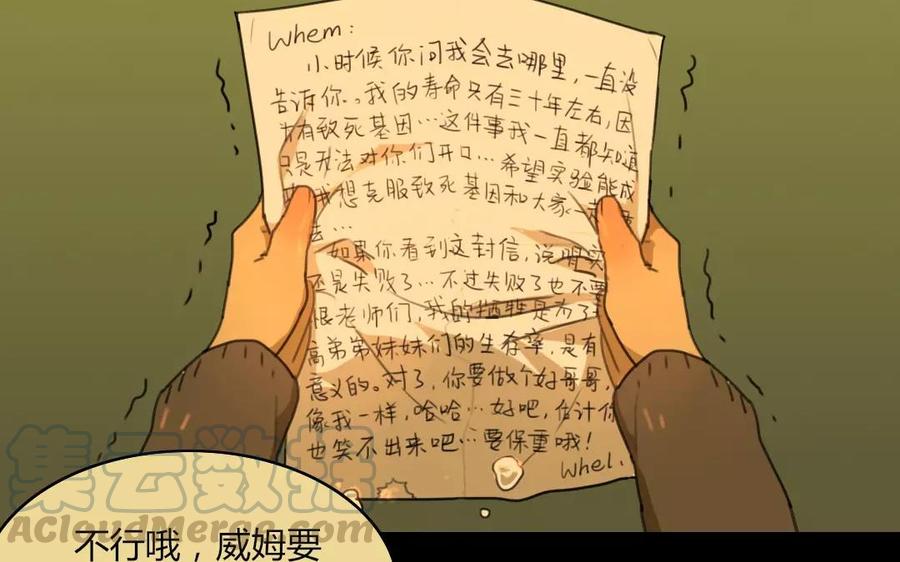 Whem:
小时候你问我会去哪里,一直没
告诉你。我的寿命只有三十年左右,因
有致死基因…这件事我一直都知道
只是无法对你们开口…希望实验能成
我想克服致死基因和大家一
去…
如果你看到这封信,说明实
还是失败了…不过失败了也不要
恨老师们,我的牺牲是为了
高弟弟妹妹们的生存率,是有
意义的。对了,你要做个好哥哥,
像我一样,哈哈…好吧,估计你
也笑不出来吧…要保重哦!
Whel.
集云数据
ACloudMerge.com
不行哦,威姆要